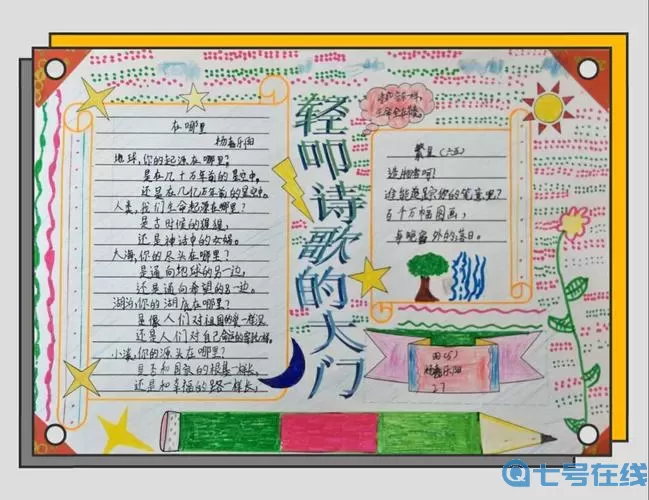 在哪里
地球,你的起源在哪里?
是在几十万年前的星空中,
还是在几亿万年前的星空中。
人类,我们生命起源在哪里?
是古时候的猩猩,
还是神话中的女娲。
大海,你的尽头在哪里?
是通向地球的另一边,
还是通向希望的另一边。
湖泊,你的湖底在哪里?
是像人们对祖国的爱一样深,
还是人们对自己一样,
小溪,你的源头在哪里?
是否和国家的根基一样长,
还是和幸福的路一样长。
轻叩诗歌的大门
繁星(六五)
造物者呵!
谁能追踪你的笔意呢?
百千万幅图画,
每晚窗外的落日。
四(5)
乐阳
27
七号在线